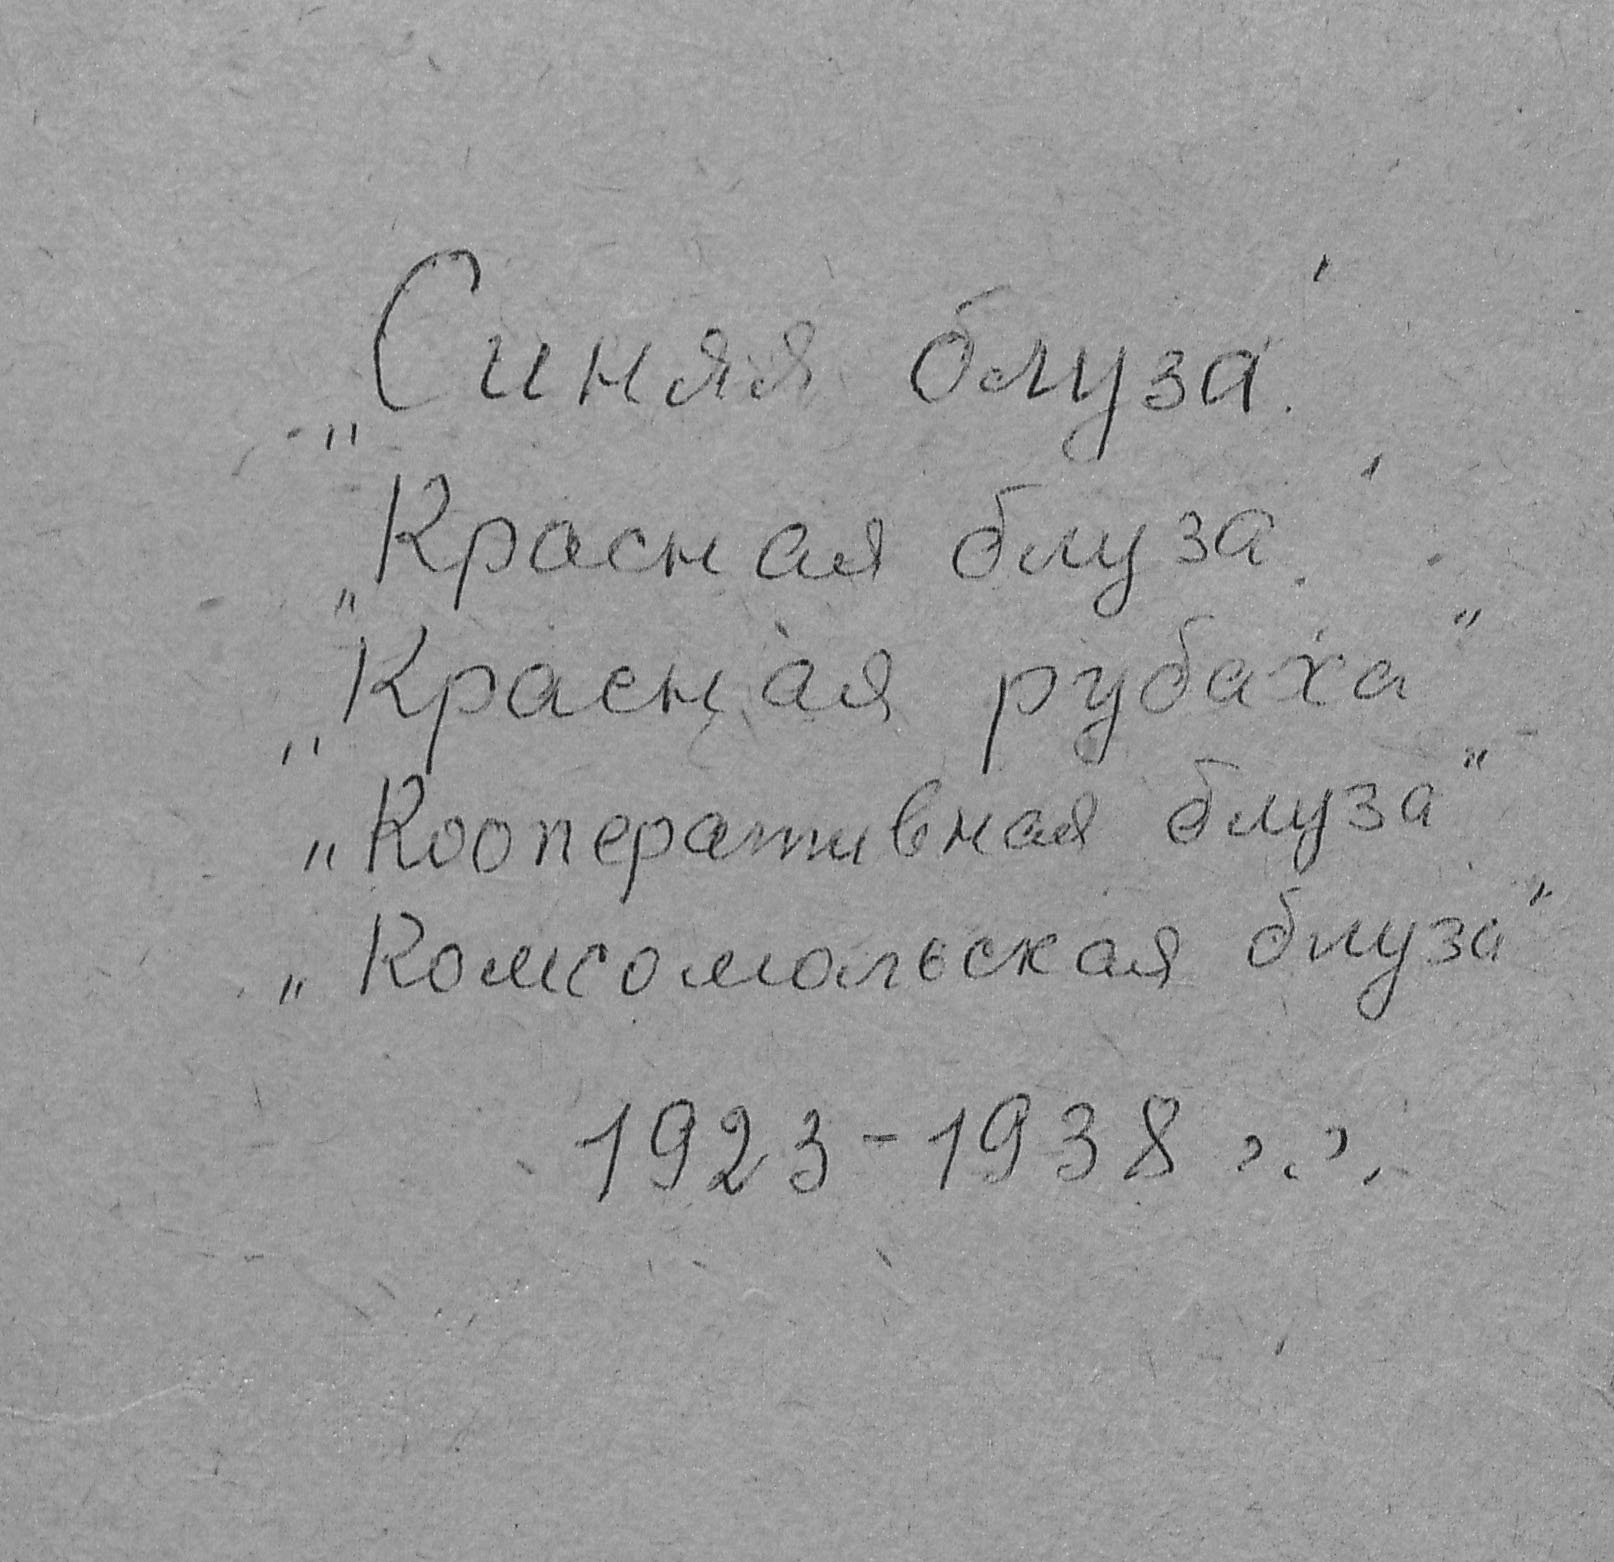 „Синяя блуза"
„Красная блуза"
„Красная рубаха"
„Кооперативная блуза"
„Комсомольская блуза"
1923-1938 г.г.